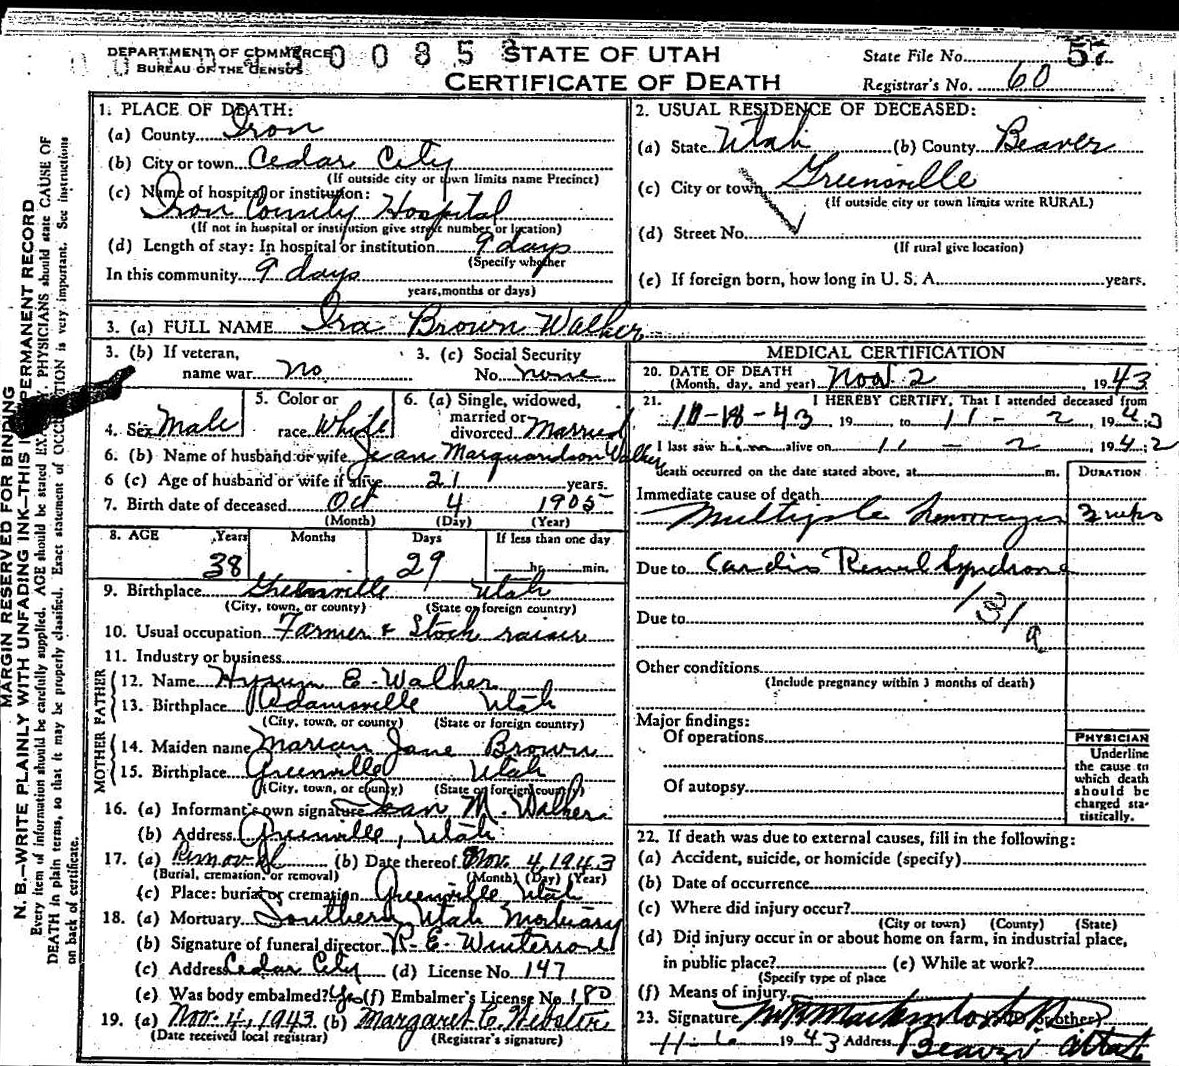 DEPARTMENT OF COMMERCE
BUREAU OF THE CENSUS
STATE OF UTAH
CERTIFICATE OF DEATH
State File No. 57
Registrar's No. 60
MARGIN RESERVED FOR BINDING
N. B.—WRITE PLAINLY WITH UNFADING INK—THIS IS PERMANENT RECORD
Every item of information should be carefully supplied. AGE should be stated EXACTLY. PHYSICIANS should state CAUSE OF
DEATH in plain terms, so that it may be properly classified. Exact statement of OCCUPATION is very important. See instructions
on back of certificate.
1. PLACE OF DEATH:
(a) County Iron
(b) City or town Cedar City
(If outside city or town limits name Precinct)
(c) Name of hospital or institution:
Iron County Hospital
(If not in hospital or institution give street number or location)
(d) Length of stay: In hospital or institution 9 days
(Specify whether
In this community 9 days
years, months or days)
2. USUAL RESIDENCE OF DECEASED:
(a) State Utah (b) County Beaver
(c) City or town Greenville
(If outside city or town limits write RURAL)
(d) Street No.
(If rural give location)
(e) If foreign born, how long in U. S. A. years.
3. (a) FULL NAME Ira Brown Walker
3. (b) If veteran,
name war no
3. (c) Social Security
No. none
4. Sex Male
5. Color or
race White
6. (a) Single, widowed,
married or
divorced Married
6. (b) Name of husband or wife Jean Marquardson Walker
6 (c) Age of husband or wife if alive 21 years.
7. Birth date of deceased Oct 4 1905
(Month) (Day) (Year)
8. AGE Years Months Days If less than one day
38 29 hr. min.
9. Birthplace Greenville Utah
(City, town, or county) (State or foreign country)
10. Usual occupation Farmer & Stock raiser
11. Industry or business
FATHER
12. Name Hyrum E. Walker
13. Birthplace Adamsville Utah
(City, town, or county) (State or foreign country)
MOTHER
14. Maiden name Marian Jane Brown
15. Birthplace Greenville Utah
(City, town, or county) (State or foreign country)
16. (a) Informant's own signature Jean M. Walker
(b) Address Greenville, Utah
17. (a) Removal (b) Date thereof Nov. 4, 1943
(Burial, cremation, or removal) (Month) (Day) (Year)
(c) Place: burial or cremation Greenville Utah
18. (a) Mortuary Southern Utah Mortuary
(b) Signature of funeral director R. E. Winterrose
(c) Address Cedar City (d) License No. 147
(e) Was body embalmed? Yes (f) Embalmer's License No. 180
19. (a) Nov. 4, 1943 (b) Margaret C. Webster
(Date received local registrar) (Registrar's signature)
MEDICAL CERTIFICATION
20. DATE OF DEATH
(Month, day, and year) Nov. 2, 1943
21. I HEREBY CERTIFY, That I attended deceased from
10-18-43, 19 to 11-2, 1943
I last saw him alive on 11-2 1942
death occurred on the date stated above, at m.
DURATION
Immediate cause of death
Multiple hemorrages 3 wks
Due to Cardio Renal Syndrone
131a
Due to
Other conditions
(Include pregnancy within 3 months of death)
Major findings:
Of operations
Of autopsy
PHYSICIAN
Underline
the cause to
which death
should be
charged sta-
tistically.
22. If death was due to external causes, fill in the following:
(a) Accident, suicide, or homicide (specify)
(b) Date of occurrence
(c) Where did injury occur?
(City or town) (County) (State)
(d) Did injury occur in or about home on farm, in industrial place,
in public place? (e) While at work?
(Specify type of place
(f) Means of injury
23. Signature (M. D. or other)
11-6 1943 Address Beaver Utah